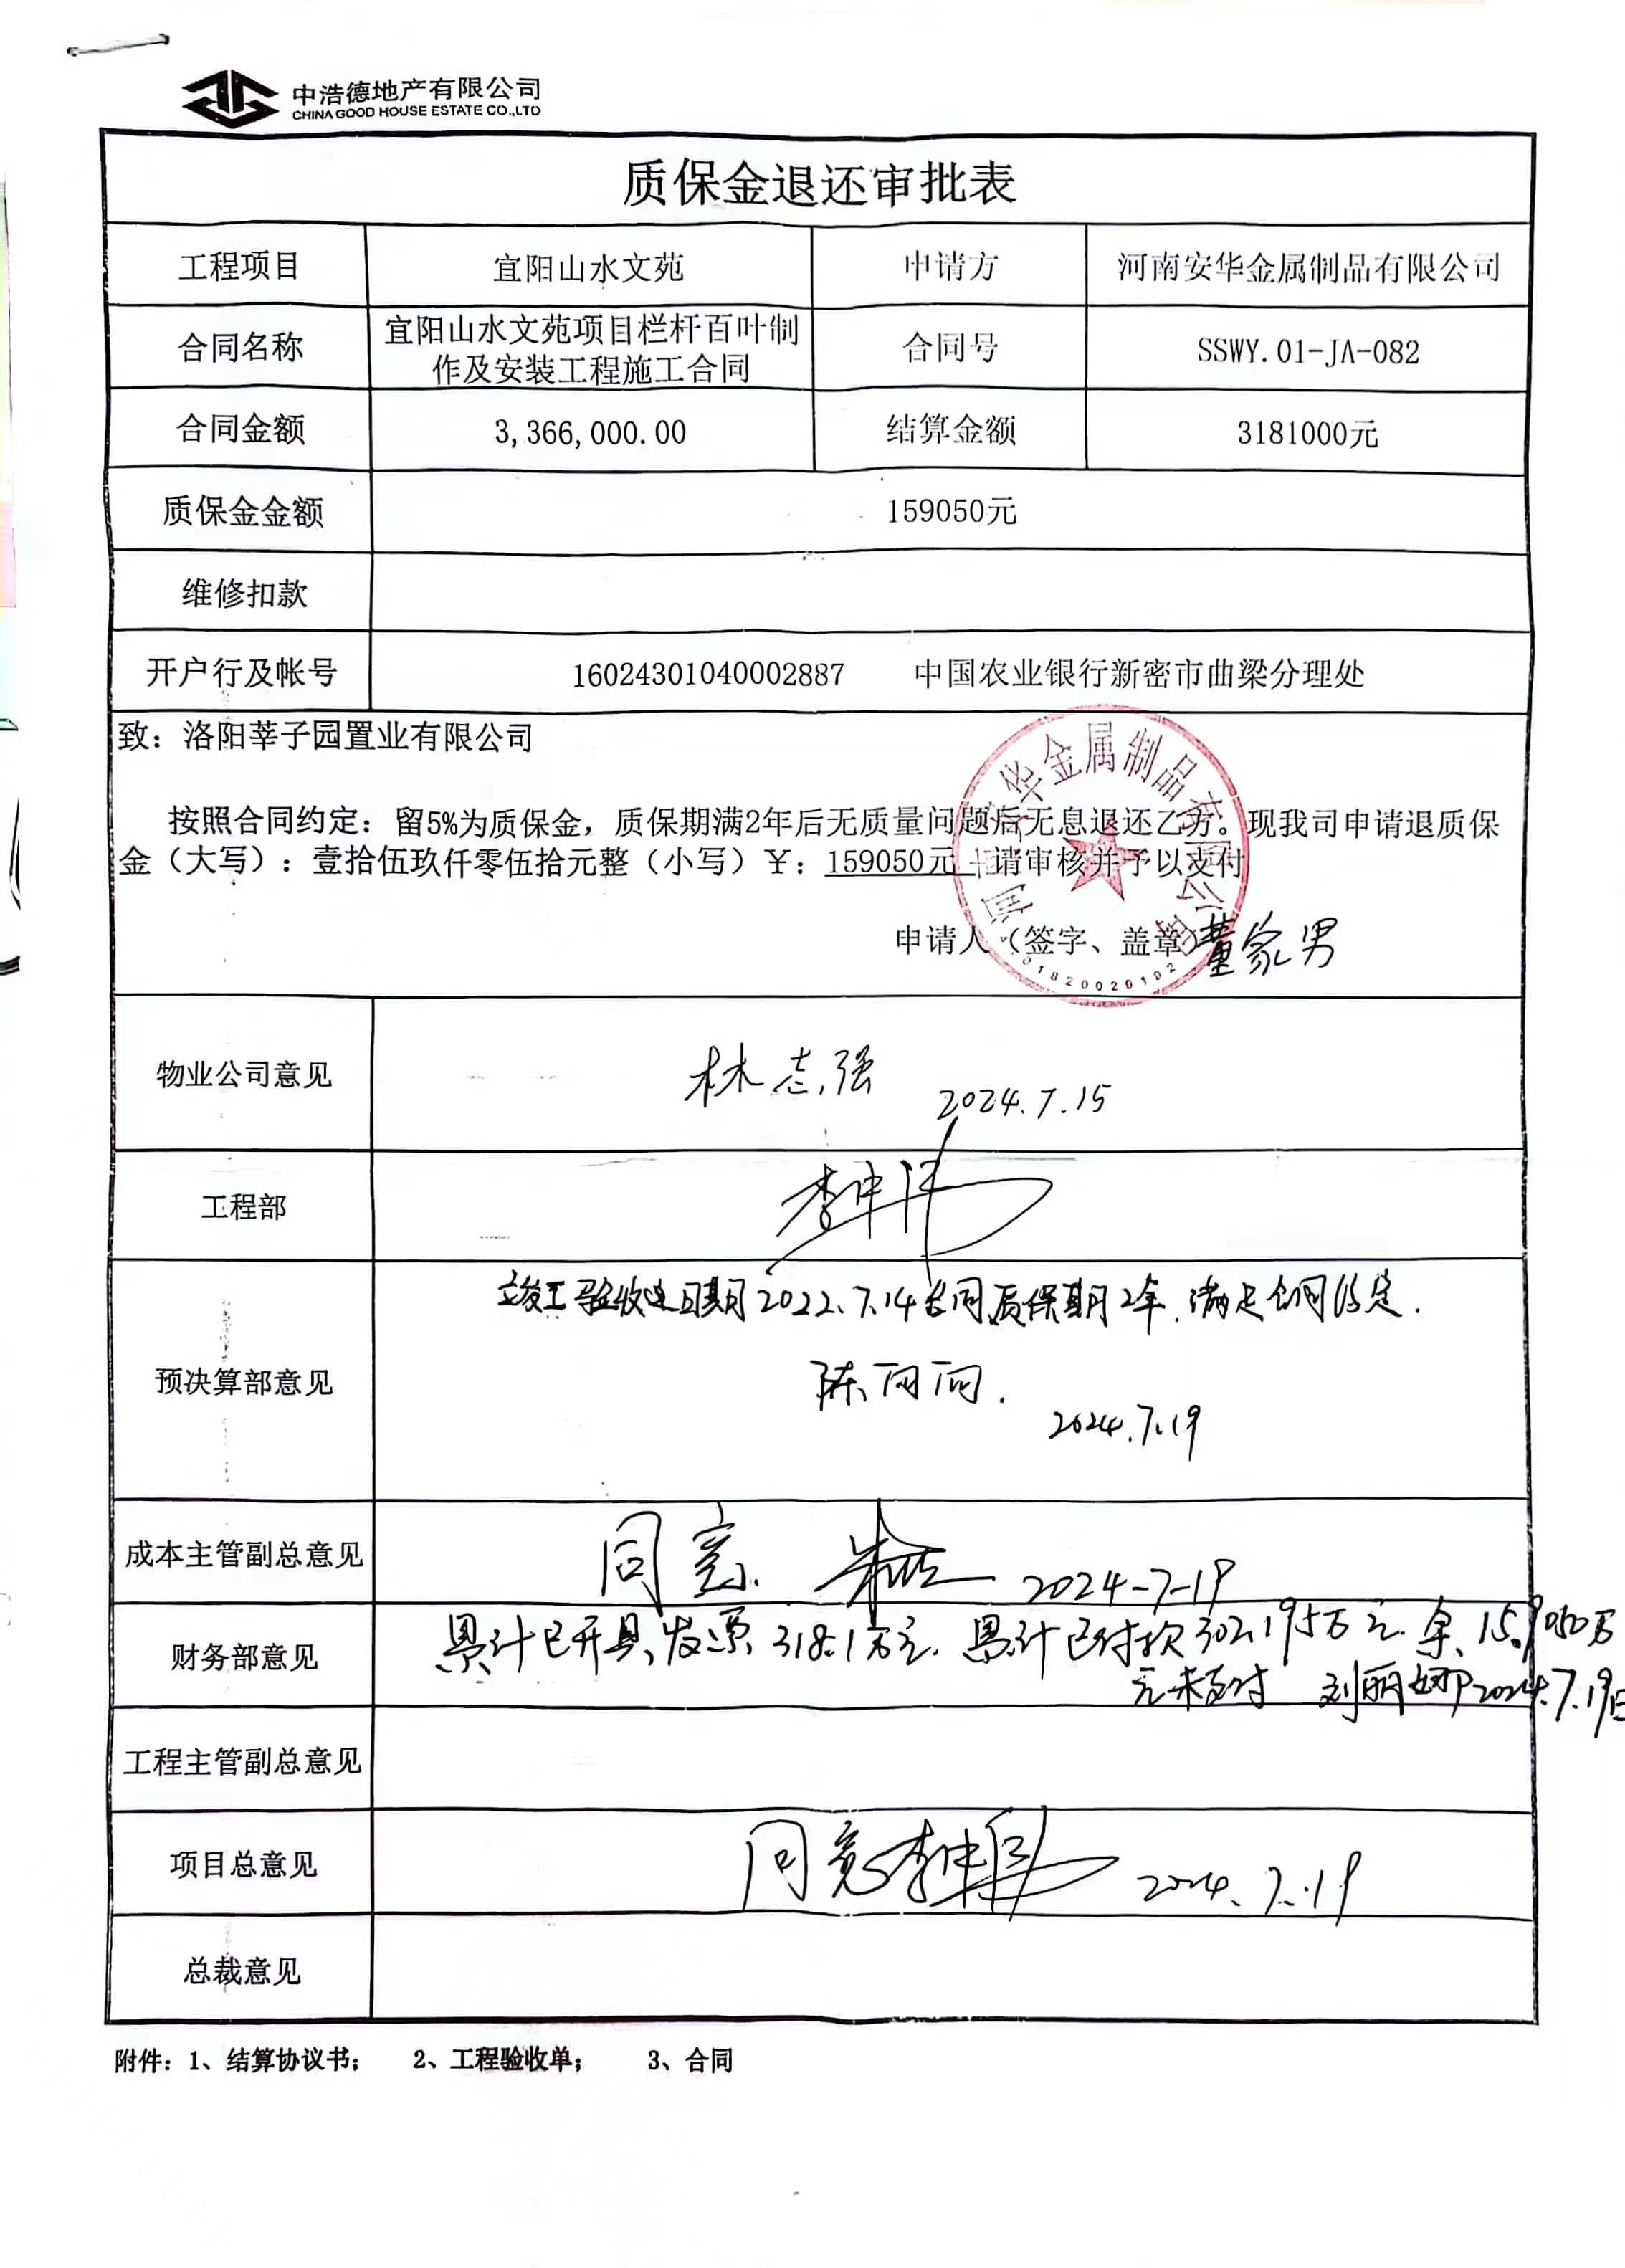 中浩德地产有限公司
CHINA GOOD HOUSE ESTATE CO.,LTD
质保金退还审批表
工程项目 宜阳山水文苑 申请方 河南安华金属制品有限公司
合同名称 宜阳山水文苑项目栏杆百叶制
作及安装工程施工合同 合同号 SSWY.01-JA-082
合同金额 3,366,000.00 结算金额 3181000元
质保金金额 159050元
维修扣款
开户行及帐号 16024301040002887 中国农业银行新密市曲梁分理处
致：洛阳莘子园置业有限公司
按照合同约定：留5%为质保金，质保期满2年后无质量问题后无息退还乙方。现我司申请退质保
金（大写）：壹拾伍玖仟零伍拾元整（小写）￥：159050元 请审核并予以支付
申请人（签字、盖章） 董家男
物业公司意见 林志强 2024.7.15
工程部
竣工验收日期2022.7.14合同质保期2年.满足合同约定.
预决算部意见 陈丽丽.
2024.7.19
成本主管副总意见 同意. 2024-7-19
财务部意见 累计已开具发票318.1万元. 累计已付款302.195万元. 余15.9050万
元未支付 刘丽娜2024.7.19日
工程主管副总意见
项目总意见 同意 2024.7.19
总裁意见
附件：1、结算协议书； 2、工程验收单； 3、合同